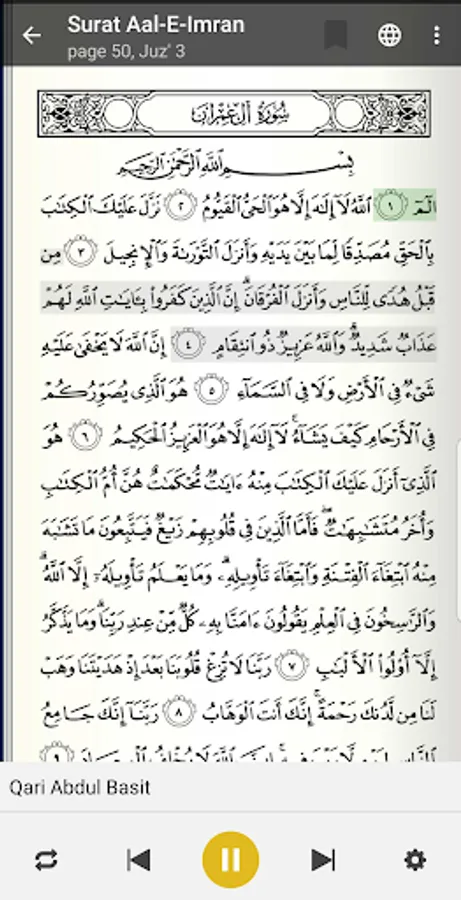 Surat Aal-E-Imran
page 50, Juz' 3
سُورَةُ آلِ عِمْرَان
بِسْمِ اللَّهِ الرَّحْمَٰنِ الرَّحِيمِ
الٓمٓ ١ ٱللَّهُ لَآ إِلَٰهَ إِلَّا هُوَ ٱلْحَىُّ ٱلْقَيُّومُ ٢ نَزَّلَ عَلَيْكَ ٱلْكِتَٰبَ
بِٱلْحَقِّ مُصَدِّقًا لِّمَا بَيْنَ يَدَيْهِ وَأَنزَلَ ٱلتَّوْرَىٰةَ وَٱلْإِنجِيلَ ٣ مِن
قَبْلُ هُدًى لِّلنَّاسِ وَأَنزَلَ ٱلْفُرْقَانَ ۗ إِنَّ ٱلَّذِينَ كَفَرُوا۟ بِـَٔايَٰتِ ٱللَّهِ لَهُمْ
عَذَابٌ شَدِيدٌ ۗ وَٱللَّهُ عَزِيزٌ ذُو ٱنتِقَامٍ ٤ إِنَّ ٱللَّهَ لَا يَخْفَىٰ عَلَيْهِ
شَىْءٌ فِى ٱلْأَرْضِ وَلَا فِى ٱلسَّمَآءِ ٥ هُوَ ٱلَّذِى يُصَوِّرُكُمْ
فِى ٱلْأَرْحَامِ كَيْفَ يَشَآءُ ۚ لَآ إِلَٰهَ إِلَّا هُوَ ٱلْعَزِيزُ ٱلْحَكِيمُ ٦ هُوَ
ٱلَّذِىٓ أَنزَلَ عَلَيْكَ ٱلْكِتَٰبَ مِنْهُ ءَايَٰتٌ مُّحْكَمَٰتٌ هُنَّ أُمُّ ٱلْكِتَٰبِ
وَأُخَرُ مُتَشَٰبِهَٰتٌ ۖ فَأَمَّا ٱلَّذِينَ فِى قُلُوبِهِمْ زَيْغٌ فَيَتَّبِعُونَ مَا تَشَٰبَهَ
مِنْهُ ٱبْتِغَآءَ ٱلْفِتْنَةِ وَٱبْتِغَآءَ تَأْوِيلِهِۦ ۗ وَمَا يَعْلَمُ تَأْوِيلَهُۥٓ إِلَّا ٱللَّهُ ۗ
وَٱلرَّٰسِخُونَ فِى ٱلْعِلْمِ يَقُولُونَ ءَامَنَّا بِهِۦ كُلٌّ مِّنْ عِندِ رَبِّنَا ۗ وَمَا يَذَّكَّرُ
إِلَّآ أُو۟لُوا۟ ٱلْأَلْبَٰبِ ٧ رَبَّنَا لَا تُزِغْ قُلُوبَنَا بَعْدَ إِذْ هَدَيْتَنَا وَهَبْ
لَنَا مِن لَّدُنكَ رَحْمَةً ۚ إِنَّكَ أَنتَ ٱلْوَهَّابُ ٨ رَبَّنَآ إِنَّكَ جَامِعُ
Qari Abdul Basit